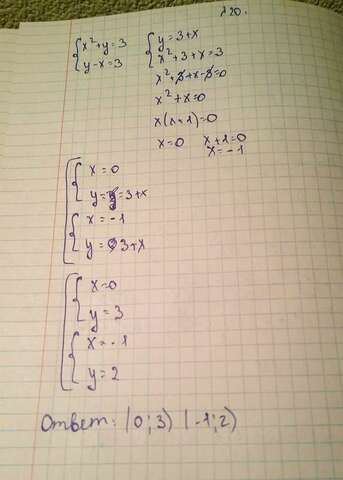 λ20.
{x²+y=3
{y-x=3
{y=3+x
{x²+3+x=3
x²+3+x-3=0
x²+x=0
x(x+1)=0
x=0 x+1=0
x=-1
x=0
y=3+x
x=-1
y=3+x
x=0
y=3
x=-1
y=2
Ответ: (0;3) (-1;2)